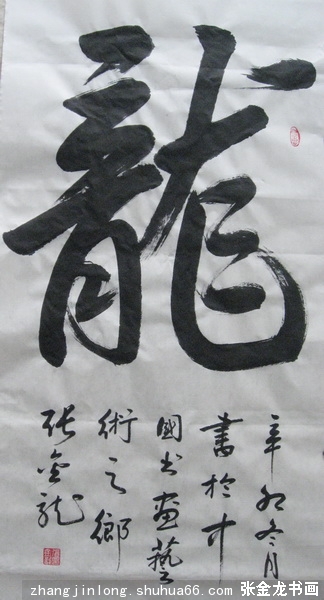 龍
辛卯冬月
書於中
國书画藝
術之鄉
张金龙
zhangjinlong.shuhua66.com 张金龙书画